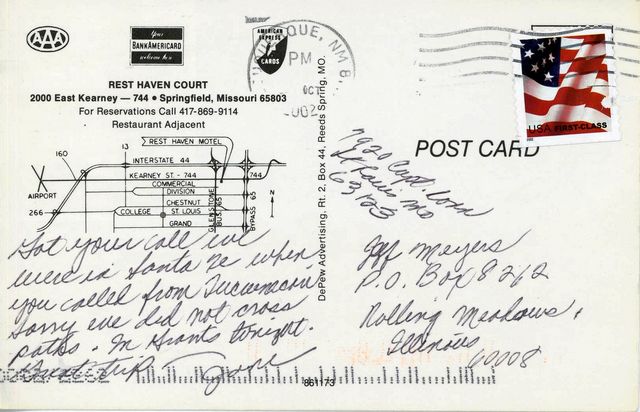 AAA
Your
BANKAMERICARD
welcome here
AMERICAN
EXPRESS
CARDS
QUE, NM 8
PM
OCT
REST HAVEN COURT
2000 East Kearney — 744 • Springfield, Missouri 65803
For Reservations Call 417-869-9114
Restaurant Adjacent
USA FIRST-CLASS
POST CARD
REST HAVEN MOTEL
13
160
INTERSTATE 44
KEARNEY ST. - 744
744
COMMERCIAL
DIVISION
AIRPORT
CHESTNUT
266
COLLEGE
ST. LOUIS
GRAND
GLENSTONE
BUS. 65
BYPASS 65
N
DePew Advertising, Rt. 2, Box 44, Reeds Spring, MO.
7920
St Louis Mo
63123
Got your call we
were in Santa Fe when
you called from Tucumcari
Sorry we did not cross
paths. In Grants tonight.
Great trip
Jeff Meyers
P.O. Box 8262
Rolling Meadows,
Illinois
60008
861173